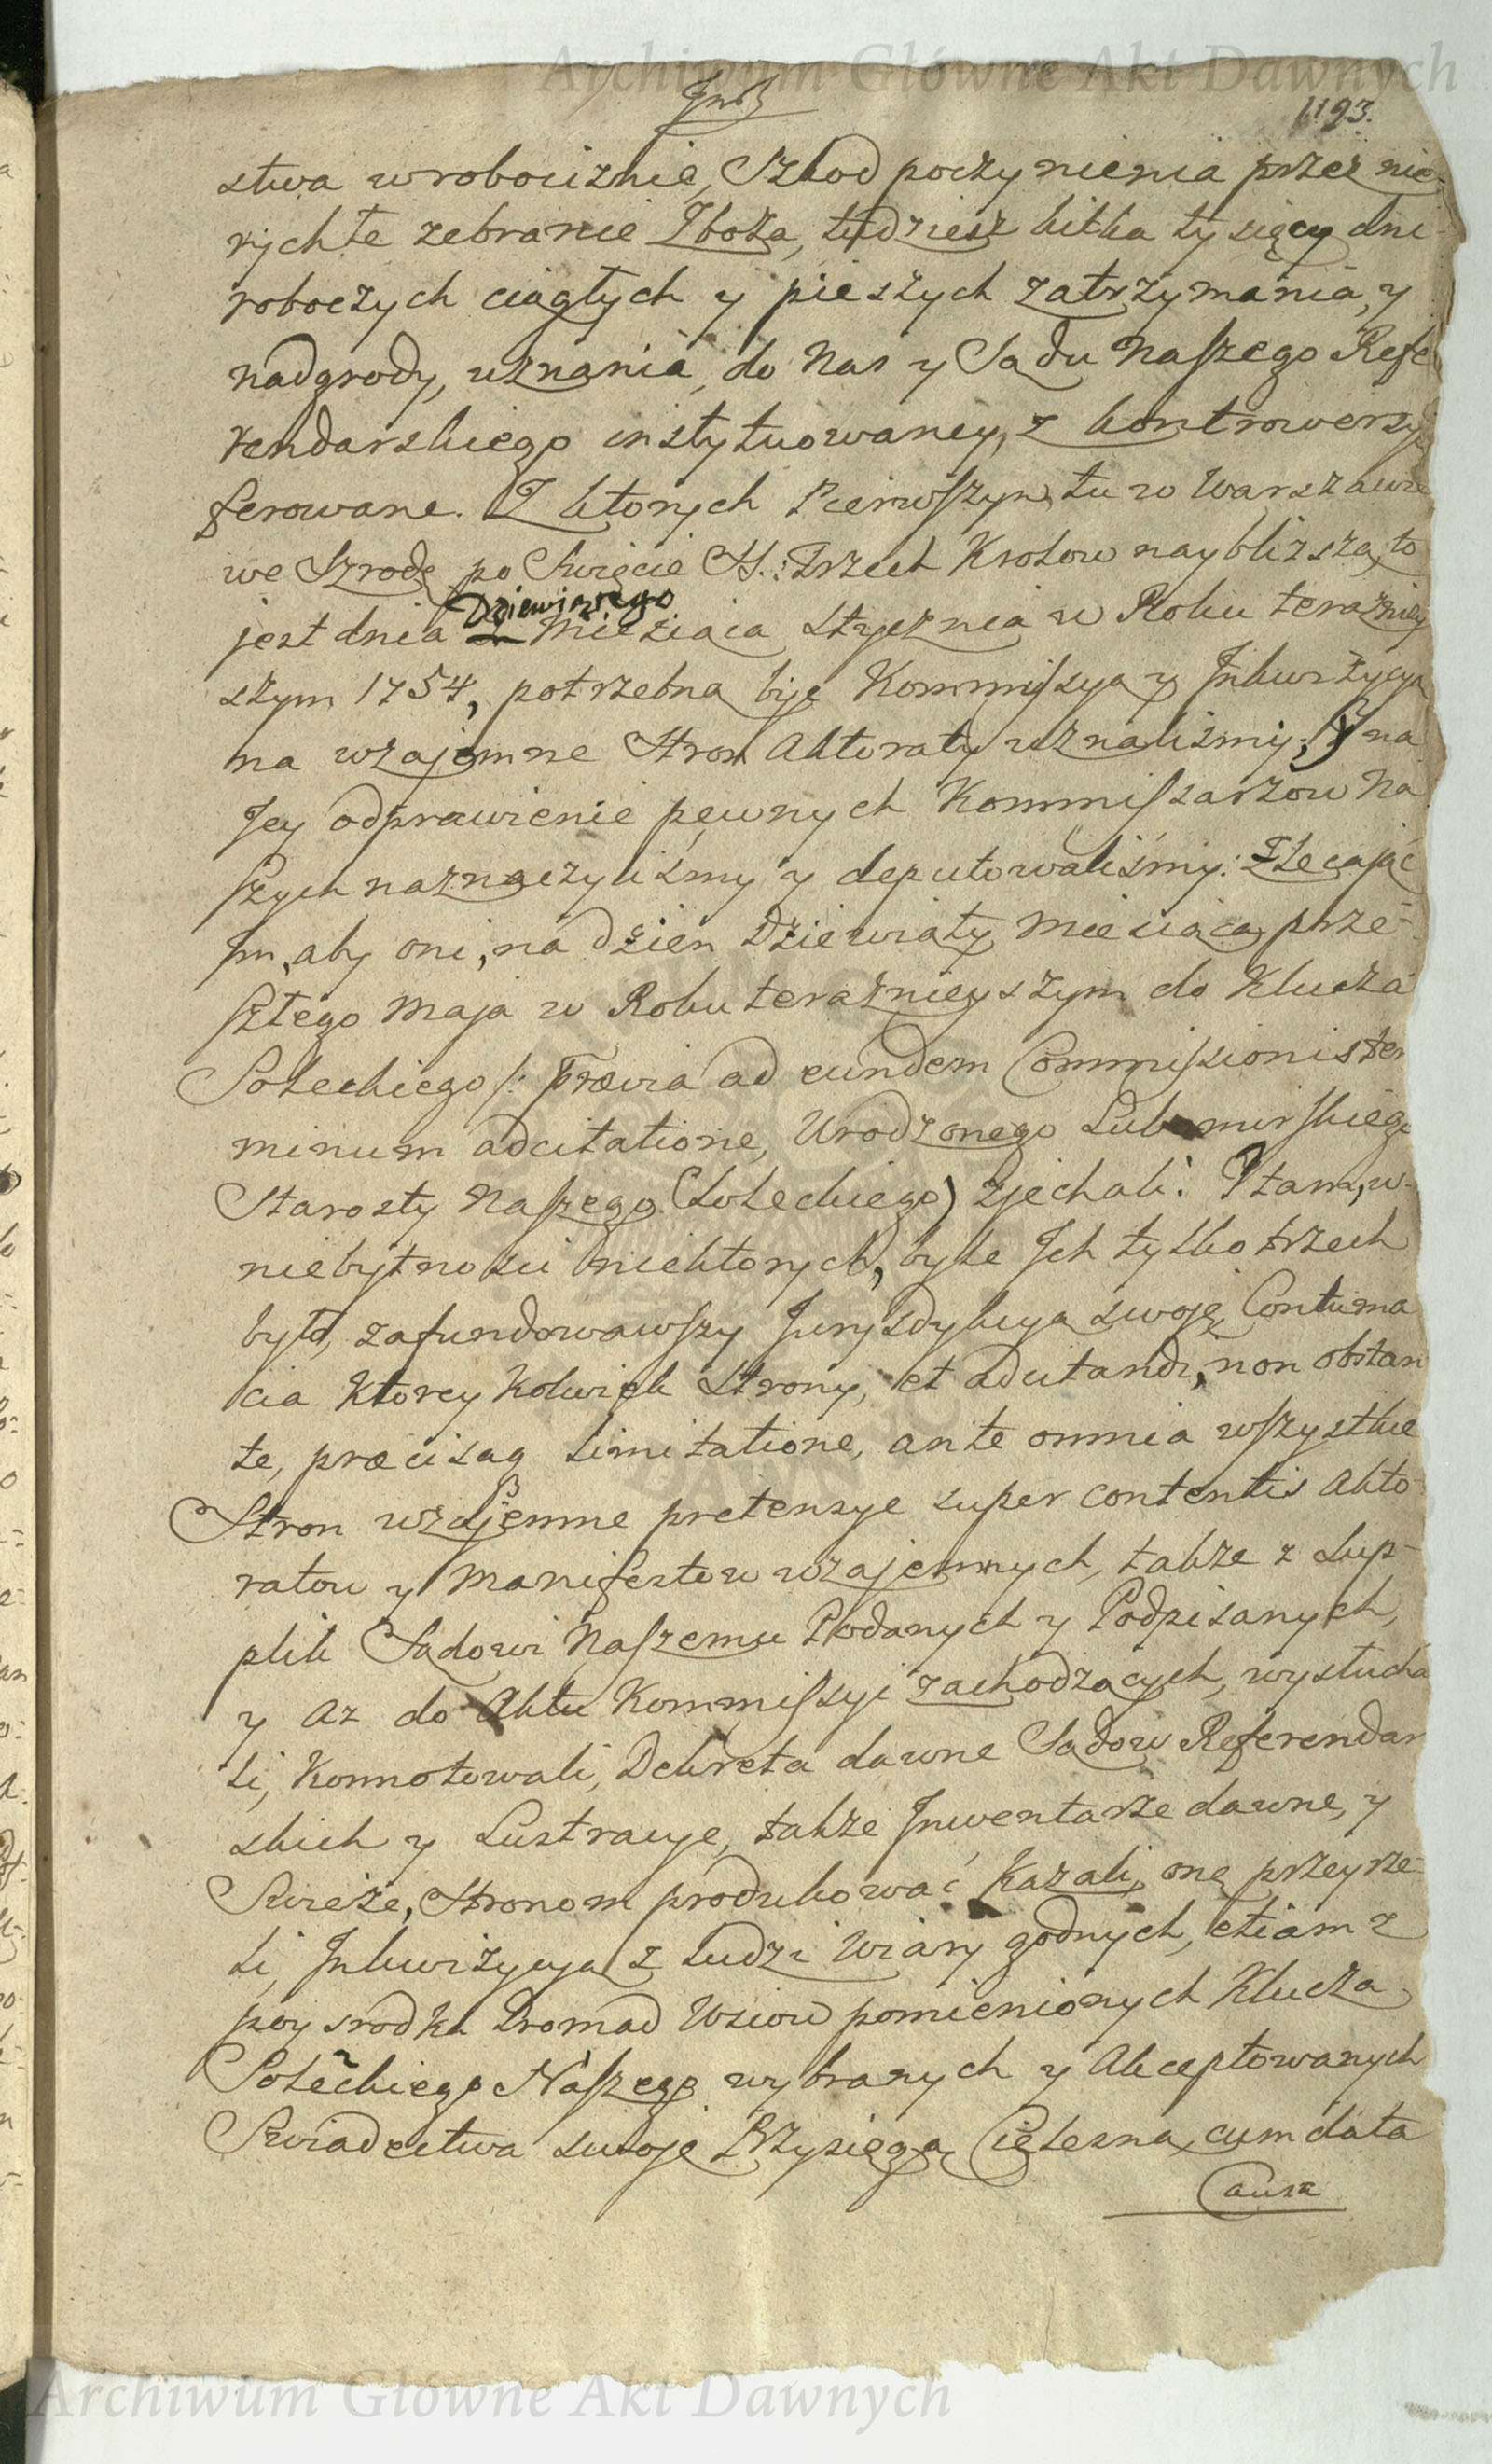 Archiwum Główne Akt Dawnych
1193.
stwa w robociznie, Szkod poczynienia przez nie-
rychłe zebranie Zboża, tudziesz kilka tysięcy dni
roboczych ciągłych y pieszych zatrzymania, y
nadgrody, uznania, do Nas y Sądu Naszego Refe
rendarskiego instytuowaney, z kontrowersyi
ferowane. Z ktorych Pierwszym tu w Warszawie
we Szrodę po Swięcie SS.: Trzech Krolow naybliższą, to
jest dnia Dziewiątego Miesiąca Stycznia w Roku teraźniey
szym 1754, potrzebną byc Kommissyą y Inkwizycyą
na wzajemne Stron Aktoraty uznalismy; Y na
Jey odprawienie pewnych Kommissarzow Na
szych naznaczylismy y deputowaliśmy: Zlecając
Im, aby oni, na dzien Dziewiąty Miesiąca prze-
szłego Maja w Roku teraźnieyszym do Klucza
Soleckiego /: Prævia ad eundem Commissionis ter
minum adcitatione, Urodzonego Lubomirskiego
Starosty Naszego Soleckiego) zjechali: Y tam, w-
niebytnosci niektorych, byle Ich tylko trzech
było, zafundowawszy Jurysdykcyą swoję, Contuma
cia ktorey kolwiek Strony, et adcitandi, non obstan
te, præcisaq limitatione, ante omnia wszystkie
Stron wzajemne pretensye super contentis Akto-
ratow y Manifestow wzajemnych, także z Sup-
plik Sądowi Naszemu Podanych y Podpisanych,
y az do Aktu Kommissyi zachodzących, wysłucha
li, Konnotowali, Dekreta dawne Sądow Referendar
skich y Lustracye, także Inwentarze dawne, y
Swieże, Stronom produkować kazali, one przeyrze-
li, Inkwizycyą z ludzi Wiary godnych, etiam z
poy srodka Gromad Wsiow pomienionych Klucza
Soleckiego Naszego wybranych y Akceptowanych
Swiadectwa swoje Przysięgą Cielesną, cum data
Causa
Archiwum Główne Akt Dawnych